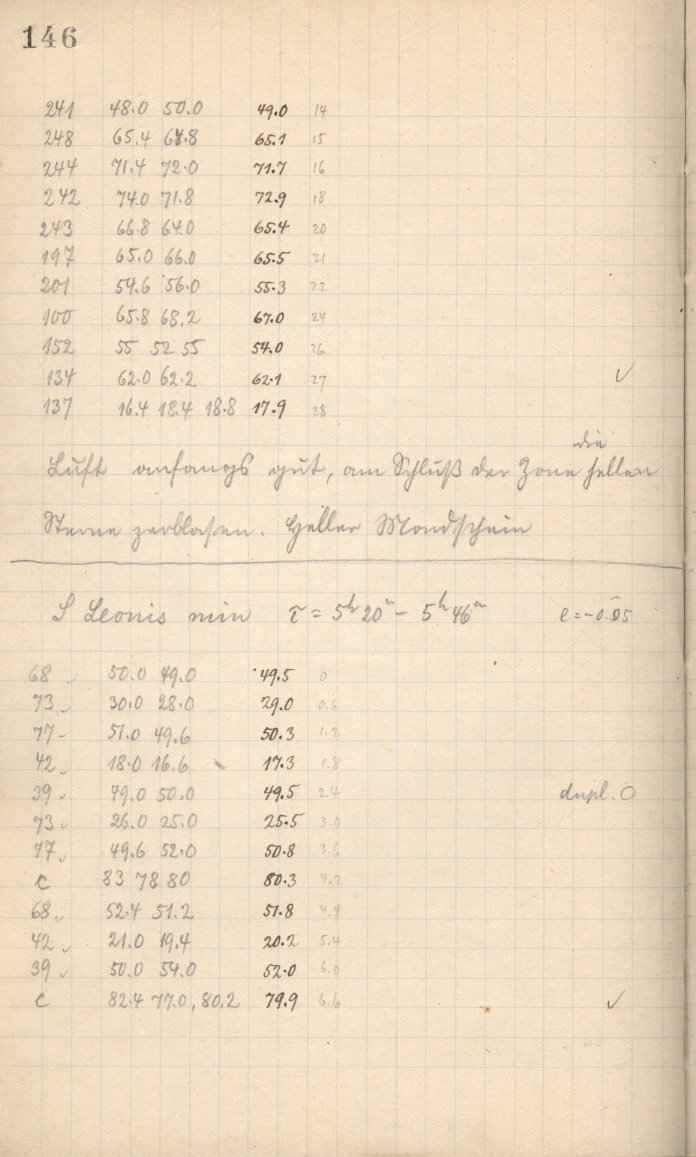 146
241 48.0 50.0 49.0 14
248 65.4 64.8 65.1 15
244 71.4 72.0 71.7 16
242 74.0 71.8 72.9 18
243 66.8 64.0 65.4 20
197 65.0 66.0 65.5 21
201 54.6 56.0 55.3 22
100 65.8 68.2 67.0 24
152 55 52 55 54.0 26
134 62.0 62.2 62.1 27 ✓
137 16.4 18.4 18.8 17.9 28
die
Luft anfangs gut, am Schluß der Zone hellen
Sterne zerblasen. Heller Mondschein
S Leonis min τ = 5h 20m – 5h 46m e = -0.05
68 50.0 49.0 49.5 0
73 30.0 28.0 29.0 0.6
77 51.0 49.6 50.3 1.2
42 18.0 16.6 17.3 1.8
39 49.0 50.0 49.5 2.4 dupl. O
73 26.0 25.0 25.5 3.0
77 49.6 52.0 50.8 3.6
c 83 78 80 80.3 4.2
68 52.4 51.2 51.8 4.8
42 21.0 19.4 20.2 5.4
39 50.0 54.0 52.0 6.0
c 82.4 77.0, 80.2 79.9 6.6 ✓